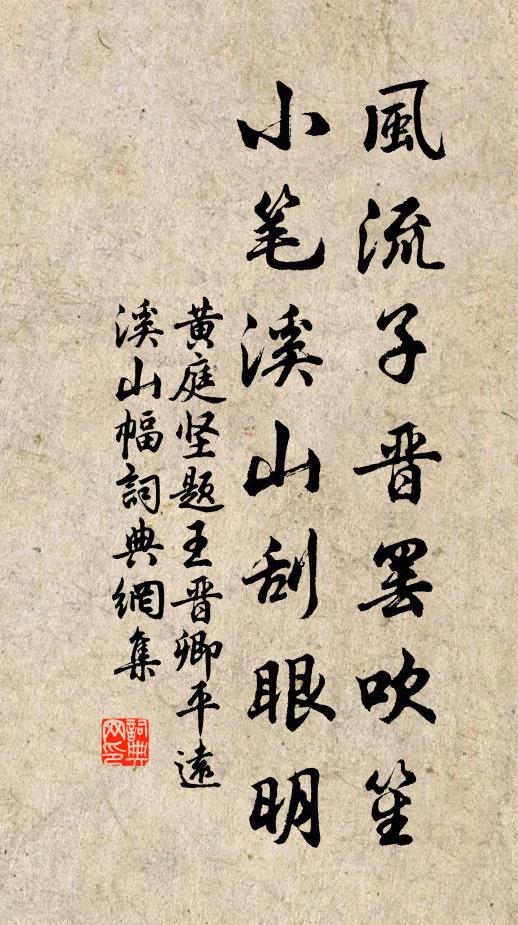 風流子晋罢吹笙
小笔溪山刮眼明
黄庭坚题王晋卿平遠
溪山幅詞典網集
詞典
网印